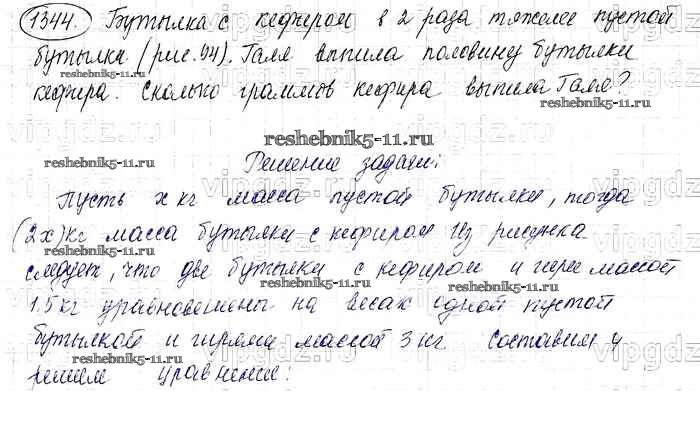 1344. Бутылка с кефиром в 2 раза тяжелее пустой
бутылки (рис. 94). Галя выпила половину бутылки
reshebnik5-11.ru
кефира. Сколько граммов кефира выпила Галя?
reshebnik5-11.ru
vipgdz.ru
reshebnik5-11.ru
reshebnik5-11.ru
Решение задачи:
Пусть x кг масса пустой бутылки, тогда
(2x) кг масса бутылки с кефиром Из рисунка
reshebnik5-11.ru
следует, что две бутылки с кефиром и гиря массой
reshebnik5-11.ru
1.5 кг уравновешены на весах одной пустой
бутылкой и гирями массой 3 кг Составим и
reshebnik5-11.ru
reshebnik5-11.ru
решим уравнение: